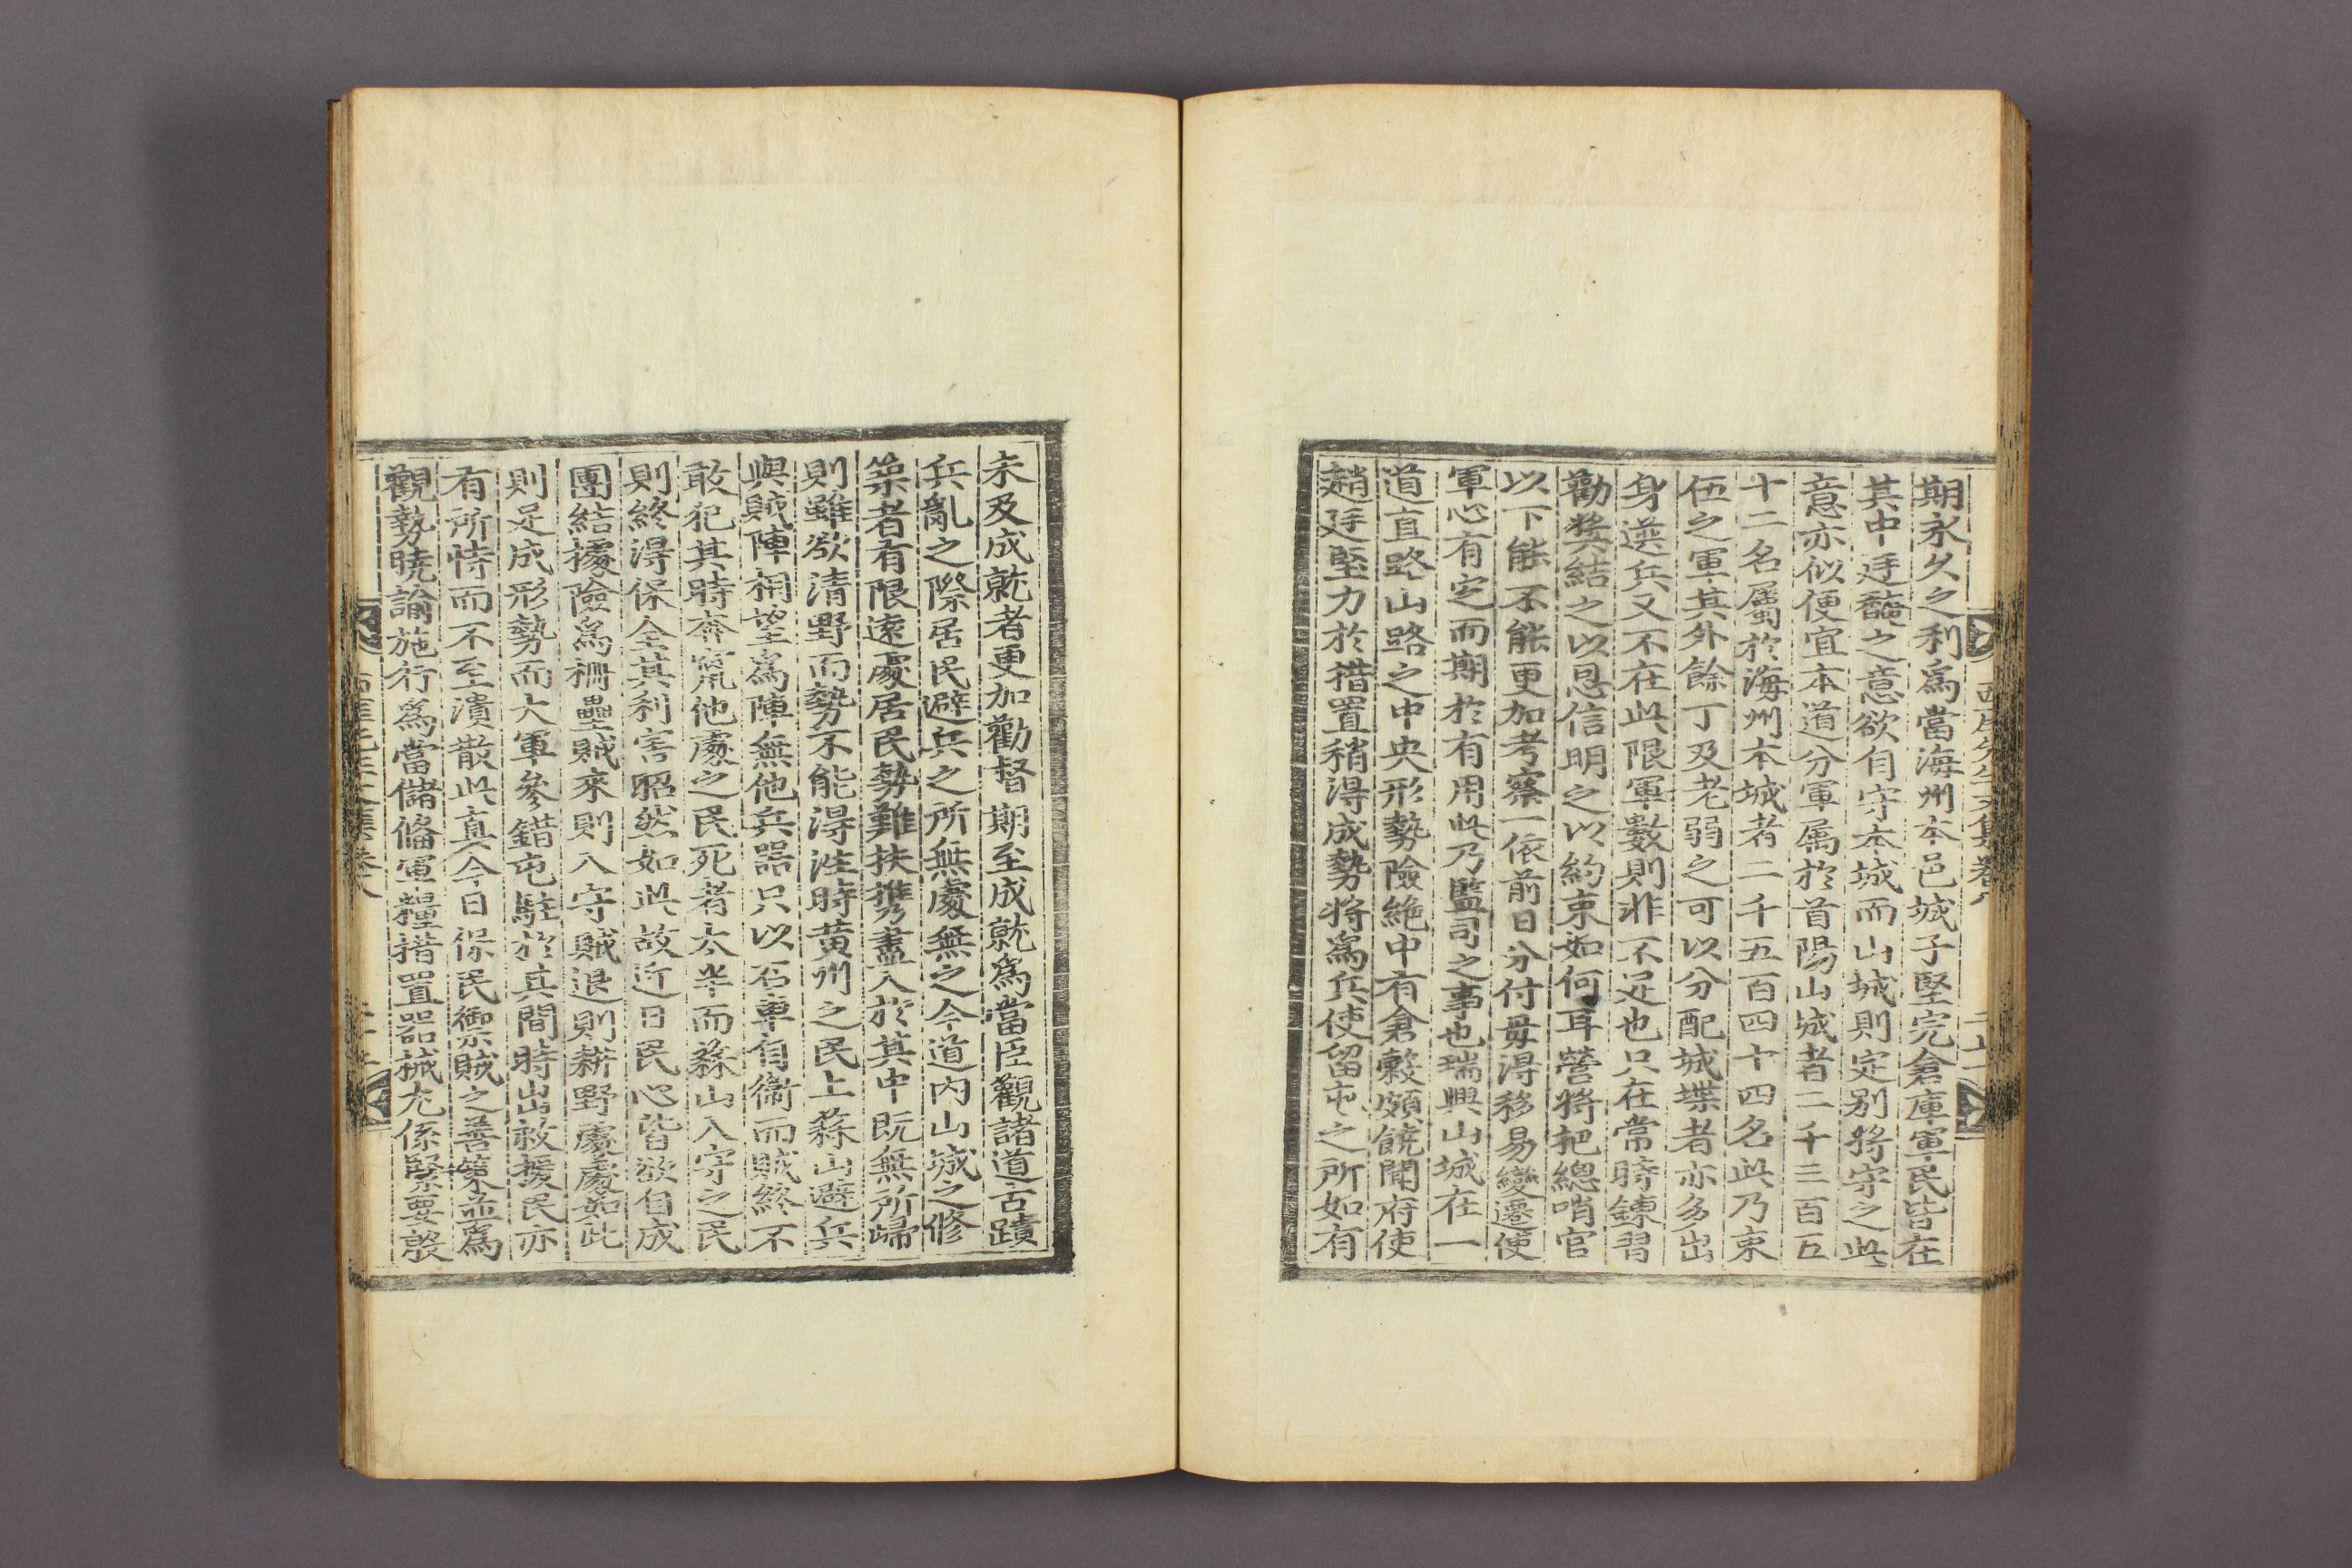 期永久之利爲當海州本邑城子堅完倉庫軍民皆在
其中廷馣之意欲自守本城而山城則定別將守之此
意亦似便宜本道分軍属於首陽山城者二千三百五
十二名屬於海州本城者二千五百四十四名此乃束
伍之軍其外餘丁及老弱之可以分配城堞者亦多出
身逆兵又不在此限軍數則非不足也只在常時鍊習
勸奬結之以恩信明之以約束如何耳營將把總哨官
以下能不能更加考察一依前日分付毋得移易變遷使
軍心有定而期於有用此乃監司之事也瑞興山城在一
道直路山路之中央形勢險絶中有倉糓頗饒聞府使
趙廷堅力於措置稍得成勢將爲兵使留屯之所如有
西厓先生文集卷八
未及成就者更加勸督期至成就爲當臣觀諸道古蹟
兵亂之際居民避兵之所無處無之今道內山城之修
築者有限遠處居民勢難扶携盡入於其中既無所歸
則雖欲清野而勢不能得法時黄州之民上蒜山避兵
與賊陣相望爲陣無他兵器只以石車自衞而賊終不
敢犯其時奔竄他處之民死者太半而蒜山入守之民
則終得保全其利害昭然如此故近日民心皆欲自成
團結據險爲柵壘賊來則入守賊退則耕野處處如此
則足成形勢而大軍參錯屯駐於其間時出救援民亦
有所恃而不至潰散此真今日保民禦賊之善策並爲
觀勢曉諭施行爲當儲偹軍糧措置器械尤係緊要殷
西厓先生文集卷八